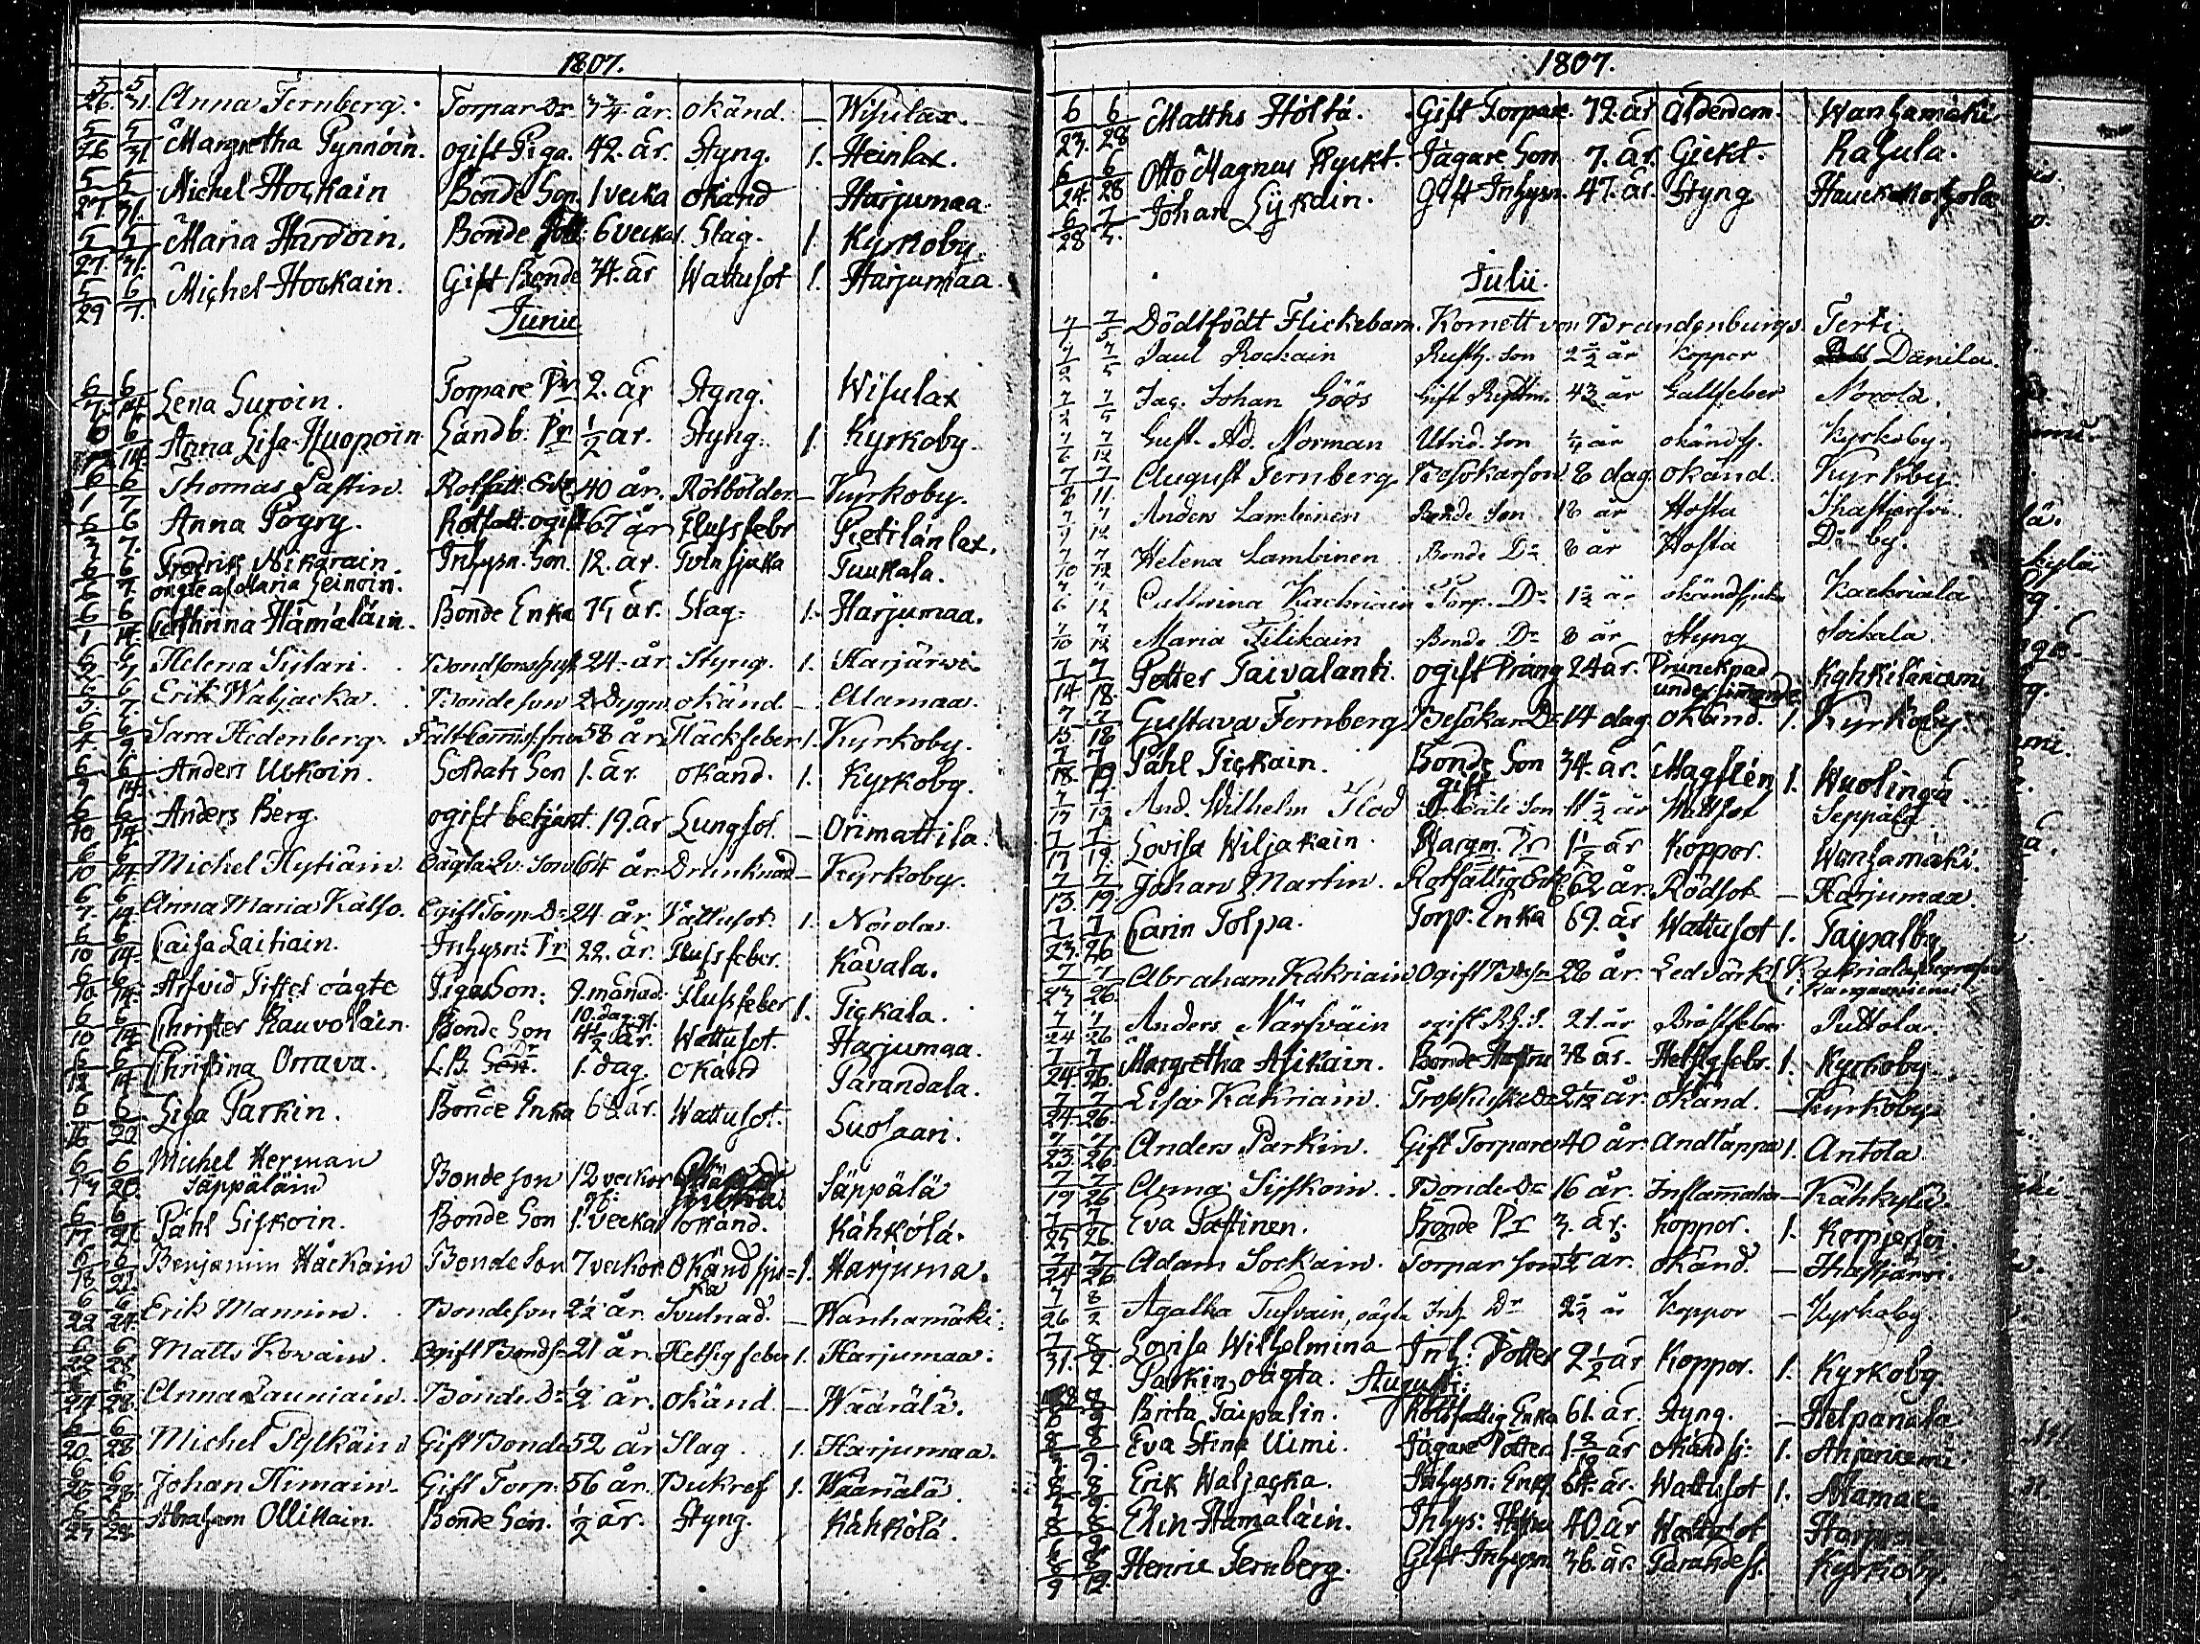 1807.
5/26. 5/31. Anna Fernberg. Torpar Dr 3/4 år. okänd. — Wisulax.
5/26 5/31 Margretha Pynnöin. ogift Piga. 42. år. Styng. 1. Heinlax.
5/27. 5/31. Michel Hockain Bonde Son 1 vecka okänd Harjumaa.
5/27. 5/31. Maria Hardoin. Bonde 6 veckor. Slag. 1. Kyrkoby.
5/29 6/7. Michel Hockain. Gift Bonde 34. år Wattusot 1. Harjumaa.
Junii
6/7. 6/14. Lena Suroin. Torpare Pr 2. år Styng. Wisulax
6/14. Anna Lisa Huopoin Landb: Pr 1/2 år. Styng. 1. Kyrkoby.
6/1 6/7 Thomas Pastin. Rotfatt. Enk. 40 år. Rötbölder — Kyrkoby.
6/7. Anna Pögry. Rotfatt. ogift 67 år Flussfebr Pietilänlax.
6/7. Fredrik Nikarain. Inhysn. Son. 12. år. Tvinsjuka Tuukala.
oägte af Maria Leinoin.
6/1 6/14. Cathrina Hämäläin. Bonde Enka 75 år. Slag. 1. Harjumaa.
Helena Siylari. Bondsonshust. 24. år Styng. 1. Karjärwi
6/3 6/7. Erik Waljacka. Bondeson 2 Dygn okänd — Alamaa.
6/4. 6/9. Sara Hedenberg. Fält Comiss: fru 58 år Fläckfeber 1. Kyrkoby.
6/14. Anders Uskoin. Soldats Son 1. år. okänd. 1. Kyrkoby.
6/10 Anders Berg. ogift betjänt. 19. år Lungsot. — Orimattila.
6/10 6/14 Michel Hytiäin. Oägta Qv: Son 64 år Drunknad — Kyrkoby.
6/7. 6/14. Anna Maria Kälso. Ogift Torp. Dr 24 år. Vattusot. 1. Norola.
6/10 6/14. Caisa Laitiain. Inhysn: Pr 22. år. Flussfeber. Kavala.
6/10 6/14. Arfvid Tiffel oägte Piga Son: 9. månad. Flussfeber 1. Tickala.
10. dag. gl.
6/10 6/14 Christer Rauvolain. Bonde Son 4 1/2 år. Wattusot. Harjumaa.
6/12 6/14 Christina Orrava. L.B. 1. dag. okänd Parandala.
6/16 Lisa Parkin. Bonde Enka år. Wattusot. Suosaari.
6/17 6/20. Michel Herman
Säppäläin Bondeson 12 veckor Säppälä
6/17 6/21 Påhl Siskoin. Bonde Son 1. vecka okänd. Kähkölä.
6/18 6/21. Benjamin Håckain Bonde Son 7 veckor Okänd sju= 1. Harjuma.
ka
6/22 6/24. Erik Mannin. Bondeson 2 1/2 år Svulnad. — Wanhamäki.
Matts Kovain. Ogift Bonds 21 år. Hetsig feber 1. Harjumaa.
6/24 6/28. Anna Launiain. Bonde Dr 1/2 år. okänd. — Wäärälä.
6/20. 6/28 Michel Pylkäin Gift Bonde 52 år Slag. 1. Harjumaa.
6/28. Johan Himain. Gift Torp. 56 år. Bukref 1. Wäärälä.
6/27 6/28. Abraham Ollikain. Bonde Son. 1/2 år. Styng. Kähkölä.
1807.
6/23. 6/28 Matths Höltä. Gift Torpare. 72. år Ålderdom. Wanhamäki
6/24. 6/28 Otto Magnus Flyckt. Jägare Son 7. år. Gickt. Rahula.
6/28 7/5. Johan Lykain. Gift Inhysn. 47. år. Styng
Julii.
7/1 7/5 Dödfödt Flickebarn. Kornett von Brandenburgs. Terti
7/2 7/5 Paul Rockain Rusth. Son 2 1/2 år koppor Danila.
7/2 7/5 Jag. Johan Göös Gift Ryttm. 43 år Gallfeber Norola.
7/6 7/12 Gust. Ad. Norman Utrid. Son 1/4 år okänd sj. Kyrkoby.
7/8 7/11. August Fernberg Besökarson 8 dag. okänd. Kyrkby.
7/7 7/12 Anders Lambinen Bonde Son 18 år Hosta Ihastjerfvi.
7/10 7/12 Helena Lambinen Bonde Dr 8 år Hosta D:o by.
7/6 7/12 Cathrina Kackriain Torp. Dr 1 1/2 år okänd sjuka Kackriala
7/10 7/12 Maria Tilikain Bonde Dr 8 år Styng Soikala.
7/14 7/18. Petter Taivalanti. ogift Dräng 24 år. Druncknad
under simande Kyhkiläniemi
7/15 7/18 Gustava Fernberg Besökare Dr 14 dag. okänd. 1. Kyrkoby.
7/18. 7/19. Påhl Tickain. Bonde Son 34. år. Magflen 1. Wuolinga
gift
7/17 7/19 And. Wilhelm Flod Son 11 1/2 år Wattsot Seppälä
7/17 7/19. Lovisa Wiljakain. Wargm. Pr 1 1/2 år Koppor. Wanhamäki.
7/13. 7/19. Johan Martin. Rotfattig Enk: 62 år Rödsot — Harjumaa.
7/23. 7/26 Carin Tolpa. Torp. Enka 69. år Wattusot 1. Taipalby
7/23 7/26. Abraham Kakriain Ogift 28 år. Ledvärk 1. Kakriala begrafven
i Kangasniemi
7/24 7/26 Anders Närfväin ogift R.H.S. 21. år Bröstfeber Puttola.
7/24. 7/26. Margretha Asikain. Bonde Hustru 38 år. Hetsig febr. 1. Kyrkoby
7/24. 7/26. Lisa Kakriain. 2 1/2 år. okänd. — Kyrkoby
7/23. 7/26. Anders Parkin. Gift Torpare 40 år. Andtäppa 1. Antola
7/19 7/26 Anna Siskoin. Bonde Dr 16 år. Inflamation — Kähkylä.
7/25 7/26. Eva Pastinen. Bonde Pr 3. år. Koppor. 1. Korpjerfvi.
7/24 7/26 Adam Sockain. Torpar son år. okänd. — Ihastjärvi.
7/26 8/2 Agatha Tufvain, oägta Inh. Dr 2 1/2 år Koppor — Kyrkoby
7/31. 8/2 Lovisa Wilhelmina Inh: Dotter 2 1/2 år Koppor. 1. Kyrkoby
Parkin, oägta. Augusti:
8/9 Brita Taipalin. Rotsfattig Enka 61. år. Styng. —
8/9. Eva Stina Uimi. Jägare Dotter år okänd sj: 1. Anjaniemi
8/9. Erik Waljacka. Inhysn: Enkl. 64. år. Wattusot 1. Alamaa.
8/9 Elin Hämäläin. Inhys: Hustru 40. år Wattusot Harjumaa
8/9 8/12. Henric Fernberg. Gift Inhysn 36. år. Kyrkoby.